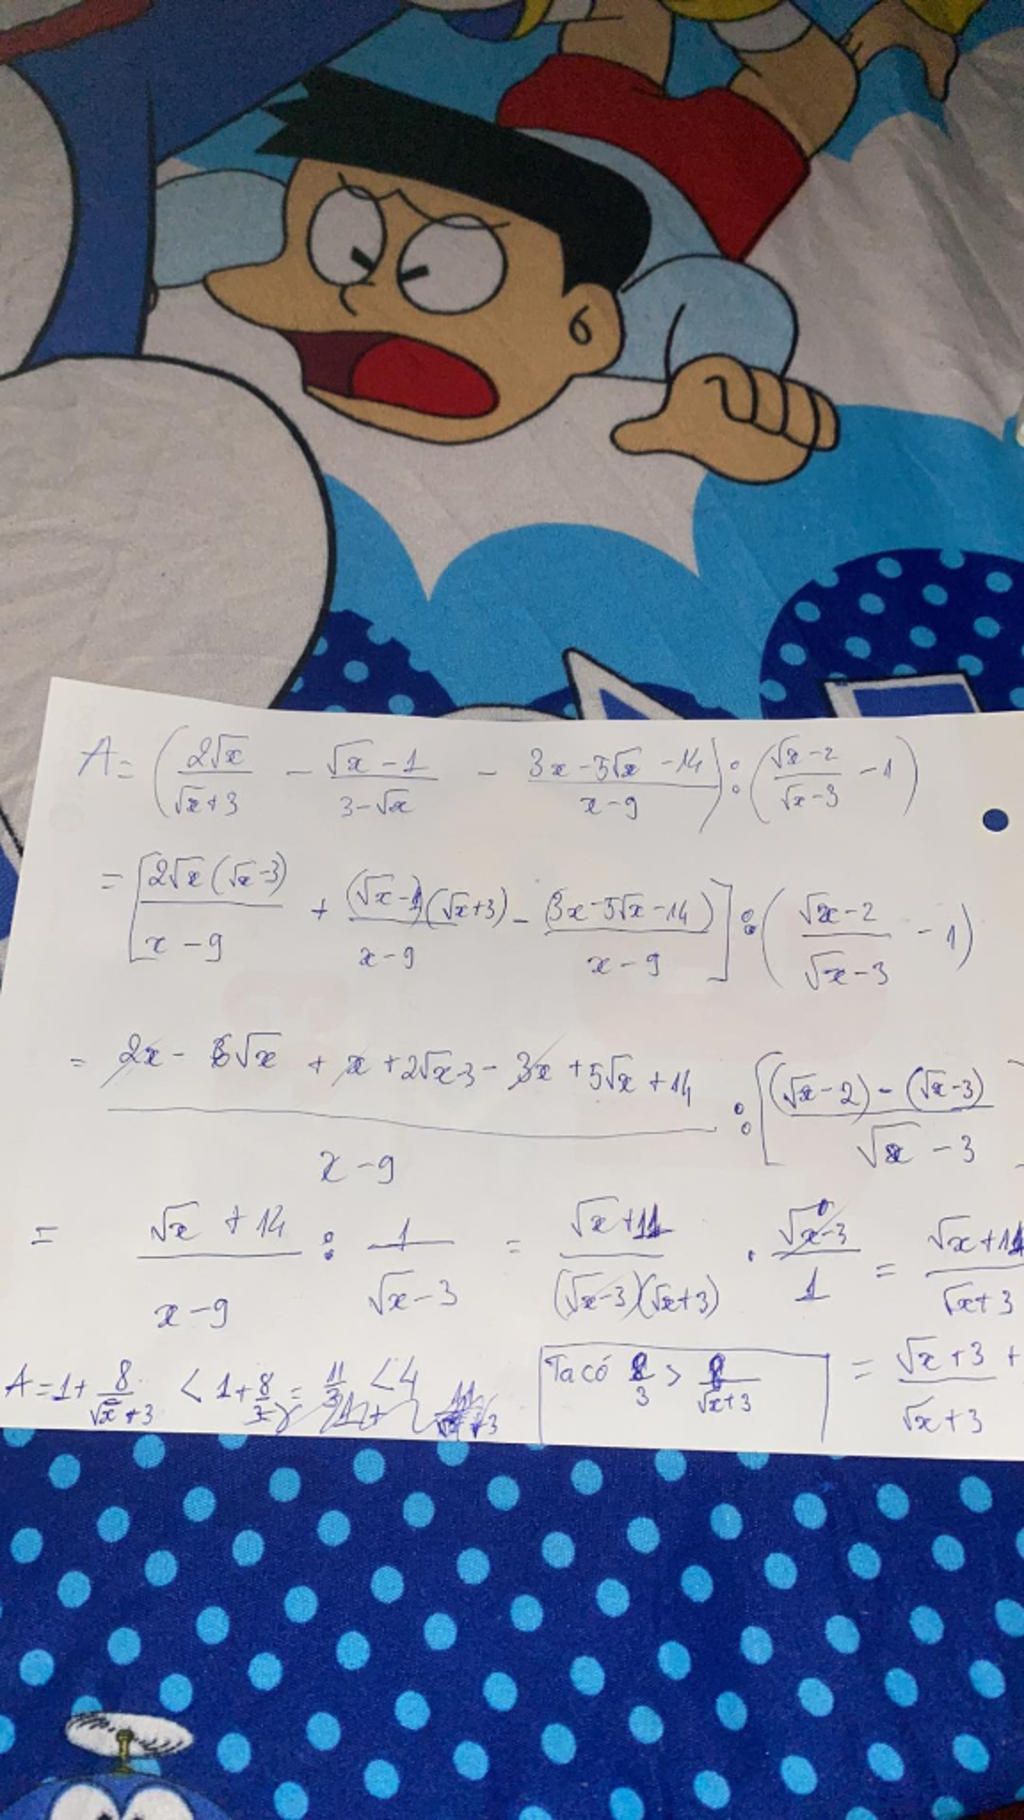 A = (2√x/(√x+3) - (√x-1)/(3-√x) - (3x-5√x-14)/(x-9)) : ((√x-2)/(√x-3) - 1)
= [2√x(√x-3)/(x-9) + (√x-1)(√x+3)/(x-9) - (3x-5√x-14)/(x-9)] : ((√x-2)/(√x-3) - 1)
= (2x - 6√x + x + 2√x - 3 - 3x + 5√x + 14)/(x-9) : [((√x-2) - (√x-3))/(√x-3)
= (√x+14)/(x-9) : 1/(√x-3) = (√x+11)/((√x-3)(√x+3)) . (√x-3)/1 = (√x+11)/(√x+3)
= (√x+3+)/(√x+3)
Ta có 8/3 > 8/(√x+3)
A = 1 + 8/(√x+3) < 1 + 8/3 = 11/3 < 4